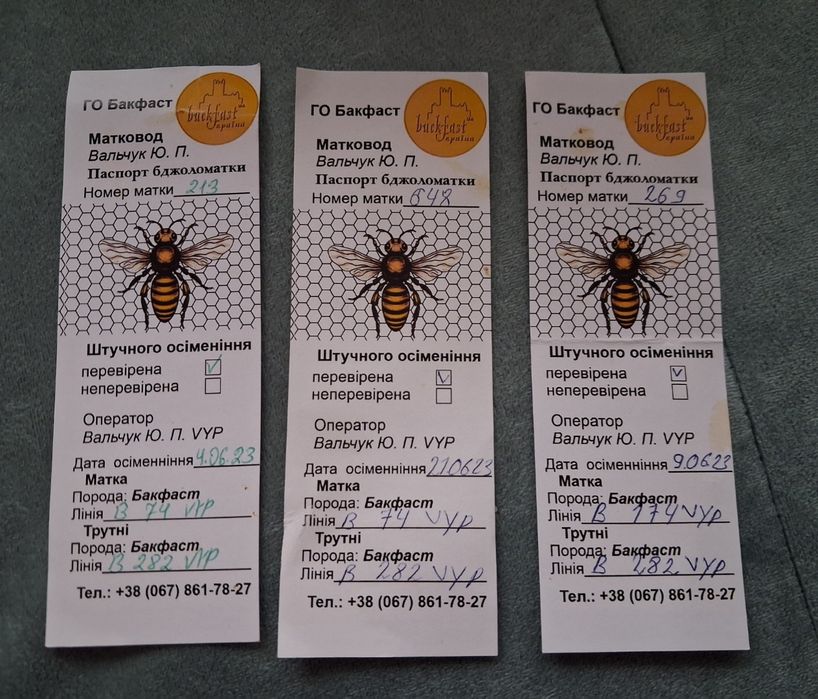 ГО Бакфаст
buckfast
Україна
Матковод
Вальчук Ю. П.
Паспорт бджоломатки
Номер матки 213
Штучного осіменіння
перевірена
неперевірена
Оператор
Вальчук Ю. П. VYP
Дата осіменніння 4.06.23
Матка
Порода: Бакфаст
Лінія В 74 VYP
Трутні
Порода: Бакфаст
Лінія В 282 VYP
Тел.: +38 (067) 861-78-27
ГО Бакфаст
buckfast
Україна
Матковод
Вальчук Ю. П.
Паспорт бджоломатки
Номер матки
Штучного осіменіння
перевірена
неперевірена
Оператор
Вальчук Ю. П. VYP
Дата осіменніння 210623
Матка
Порода: Бакфаст
Лінія В 74 VYP
Трутні
Порода: Бакфаст
Лінія В 282 VYP
Тел.: +38 (067) 861-78-27
ГО Бакфаст
buckfast
Україна
Матковод
Вальчук Ю. П.
Паспорт бджоломатки
Номер матки 269
Штучного осіменіння
перевірена
неперевірена
Оператор
Вальчук Ю. П. VYP
Дата осіменніння 9.06.23
Матка
Порода: Бакфаст
Лінія В 174 VYP
Трутні
Порода: Бакфаст
Лінія В 282 VYP
Тел.: +38 (067) 861-78-27